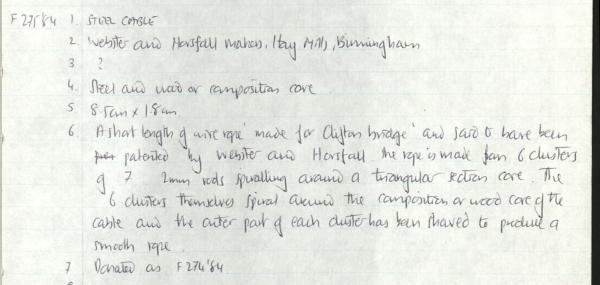 F275'84 1. STEEL CABLE
2. Webster and Horsfall makers, Hay Mills, Birmingham
3 ?
4. Steel and wood or composition core
5 8.5cm x 1.8cm
6. A short length of 'wire rope' made for Clifton bridge' and said to have been
patented by Webster and Horsfall. The rope is made from 6 clusters
of 7 2mm rods spiralling around a triangular section core. The
6 clusters themselves spiral around the composition or wood core of the
cable and the outer part of each cluster has been shaved to produce a
smooth rope.
7 Donated as F274'84